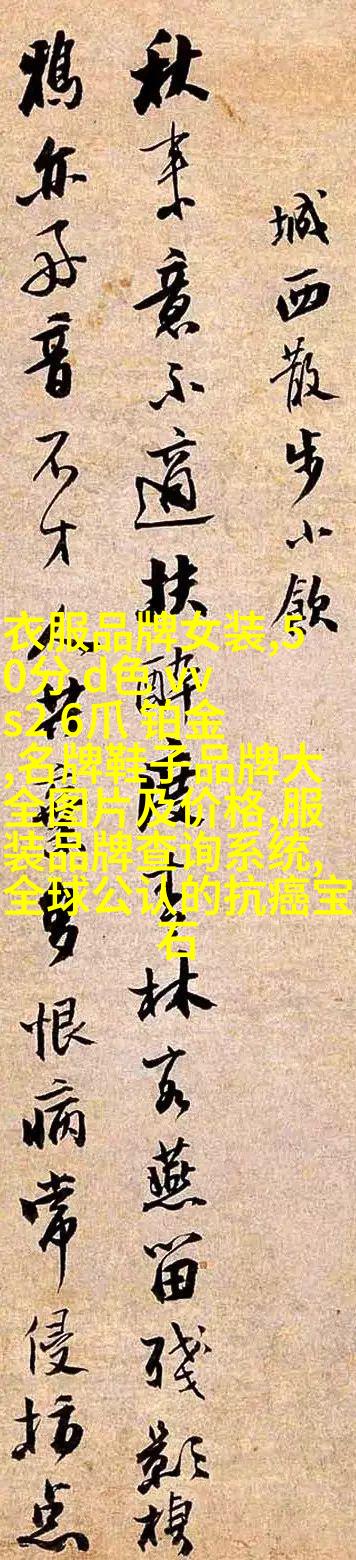 城西散步小飲
秋来意不適扶醉度林客燕留残影
鴉亦好音不才人棄多恨病常侵
衣服品牌女装,5
0分 d色 vv
s2 6爪 铂金
,名牌鞋子品牌大
全图片及价格,服
装品牌查询系统,
全球公认的抗癌宝
石